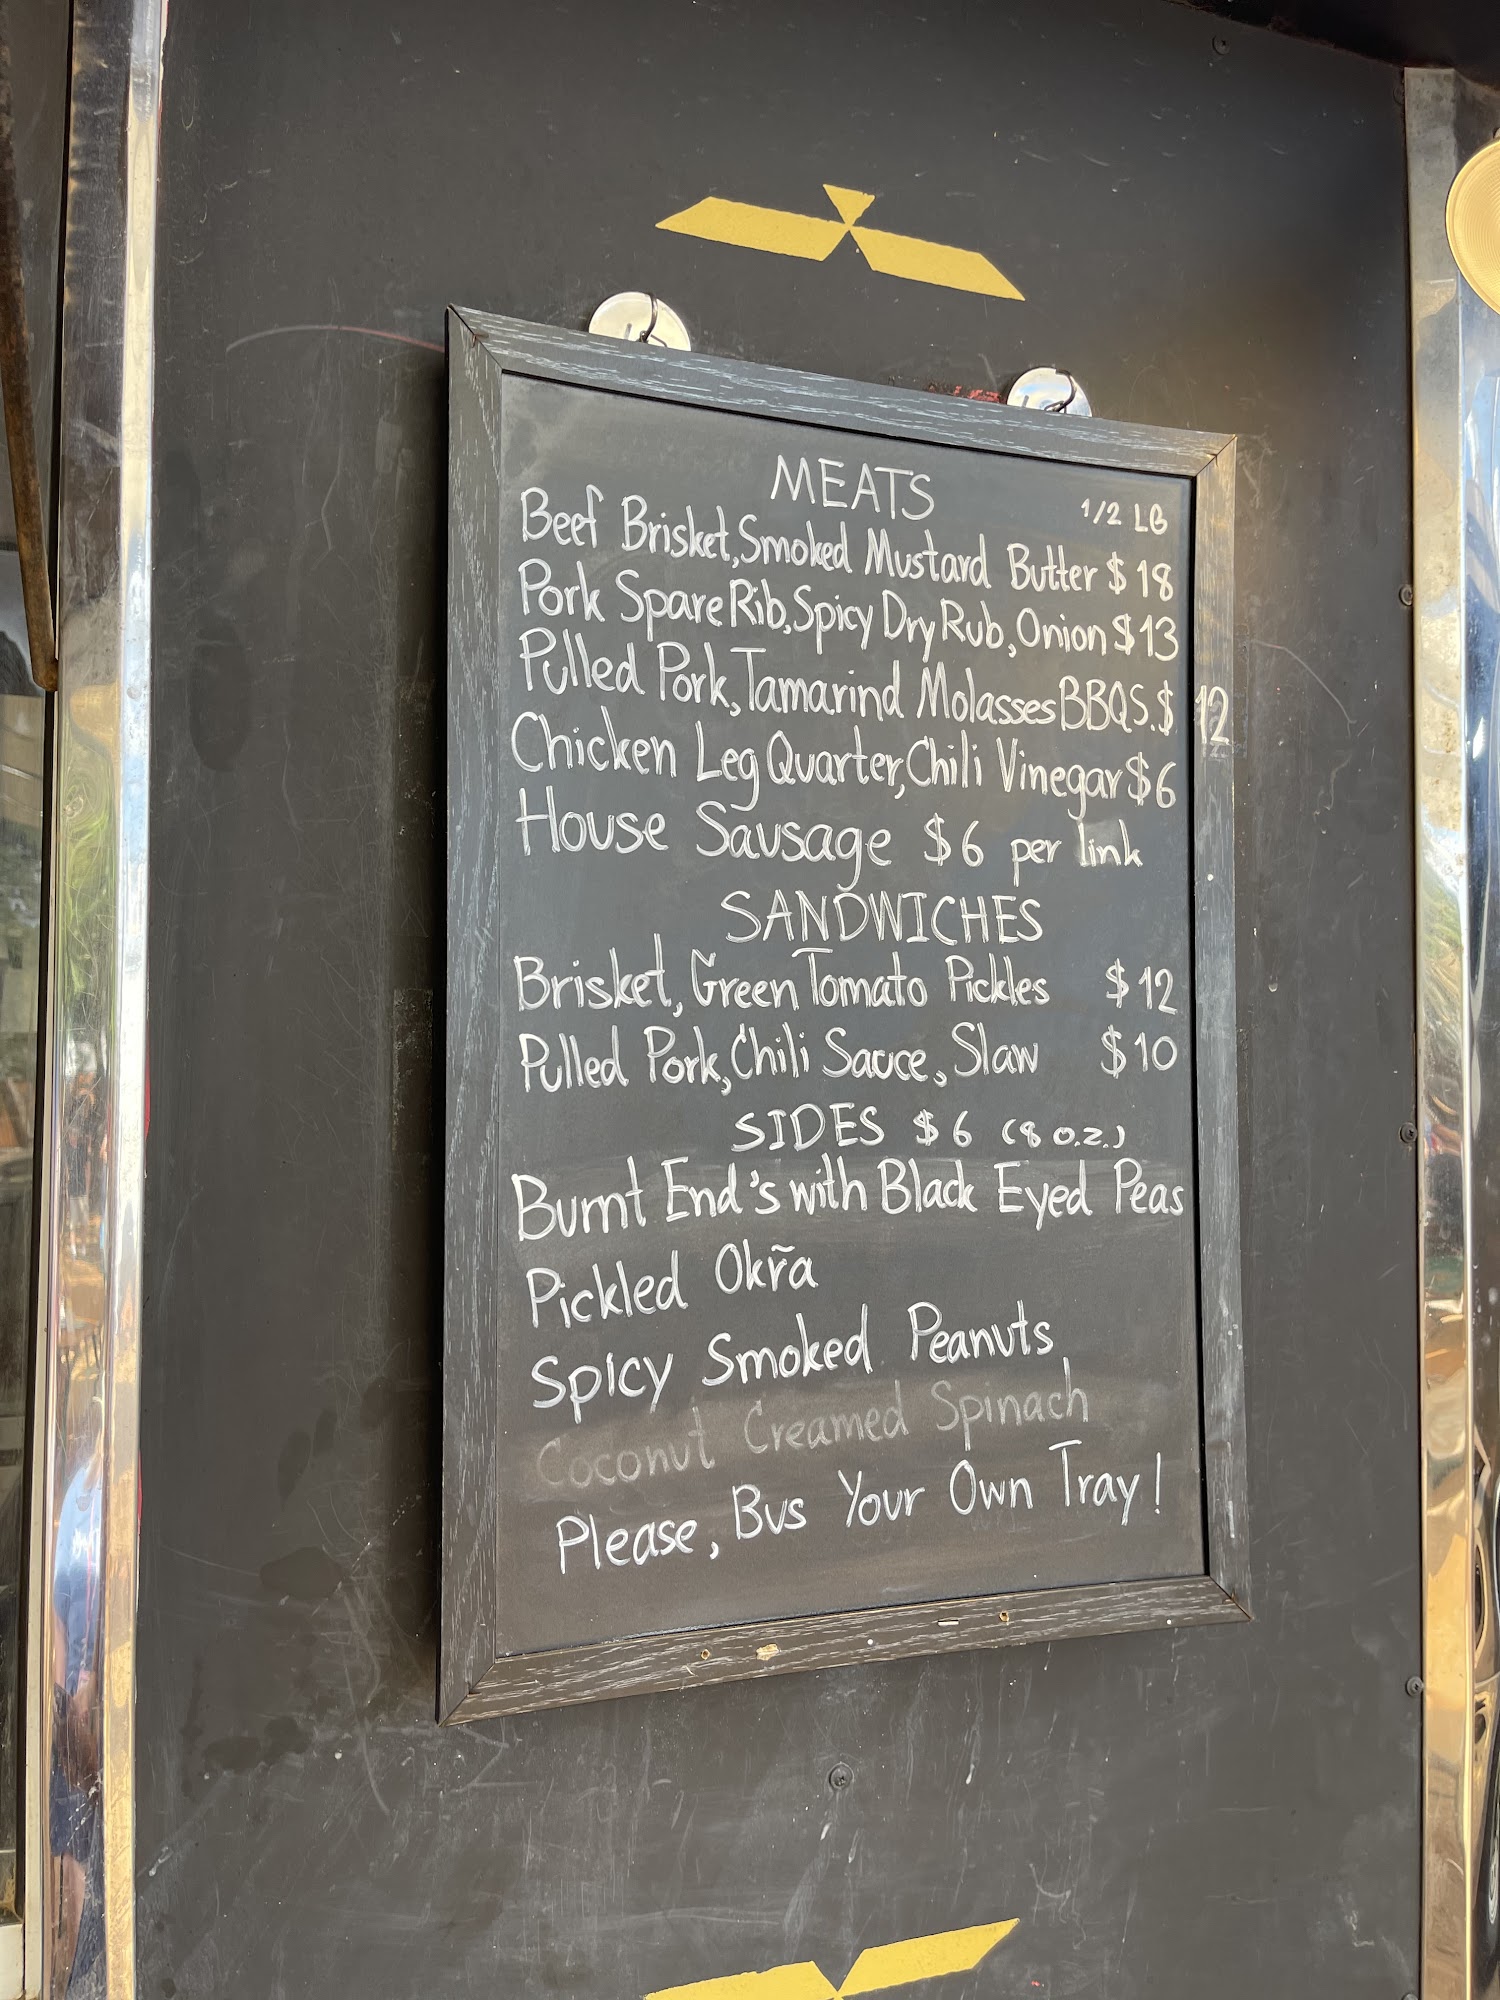 MEATS
1/2 LB
Beef Brisket, Smoked Mustard Butter $18
Pork Spare Rib, Spicy Dry Rub, Onion $13
Pulled Pork, Tamarind Molasses BBQS. $12
Chicken Leg Quarter, Chili Vinegar $6
House Sausage $6 per link
SANDWICHES
Brisket, Green Tomato Pickles $12
Pulled Pork, Chili Sauce, Slaw $10
SIDES $6 (8 o.z.)
Burnt End's with Black Eyed Peas
Pickled Okr̃a
Spicy Smoked Peanuts
Coconut Creamed Spinach
Please, Bus Your Own Tray!